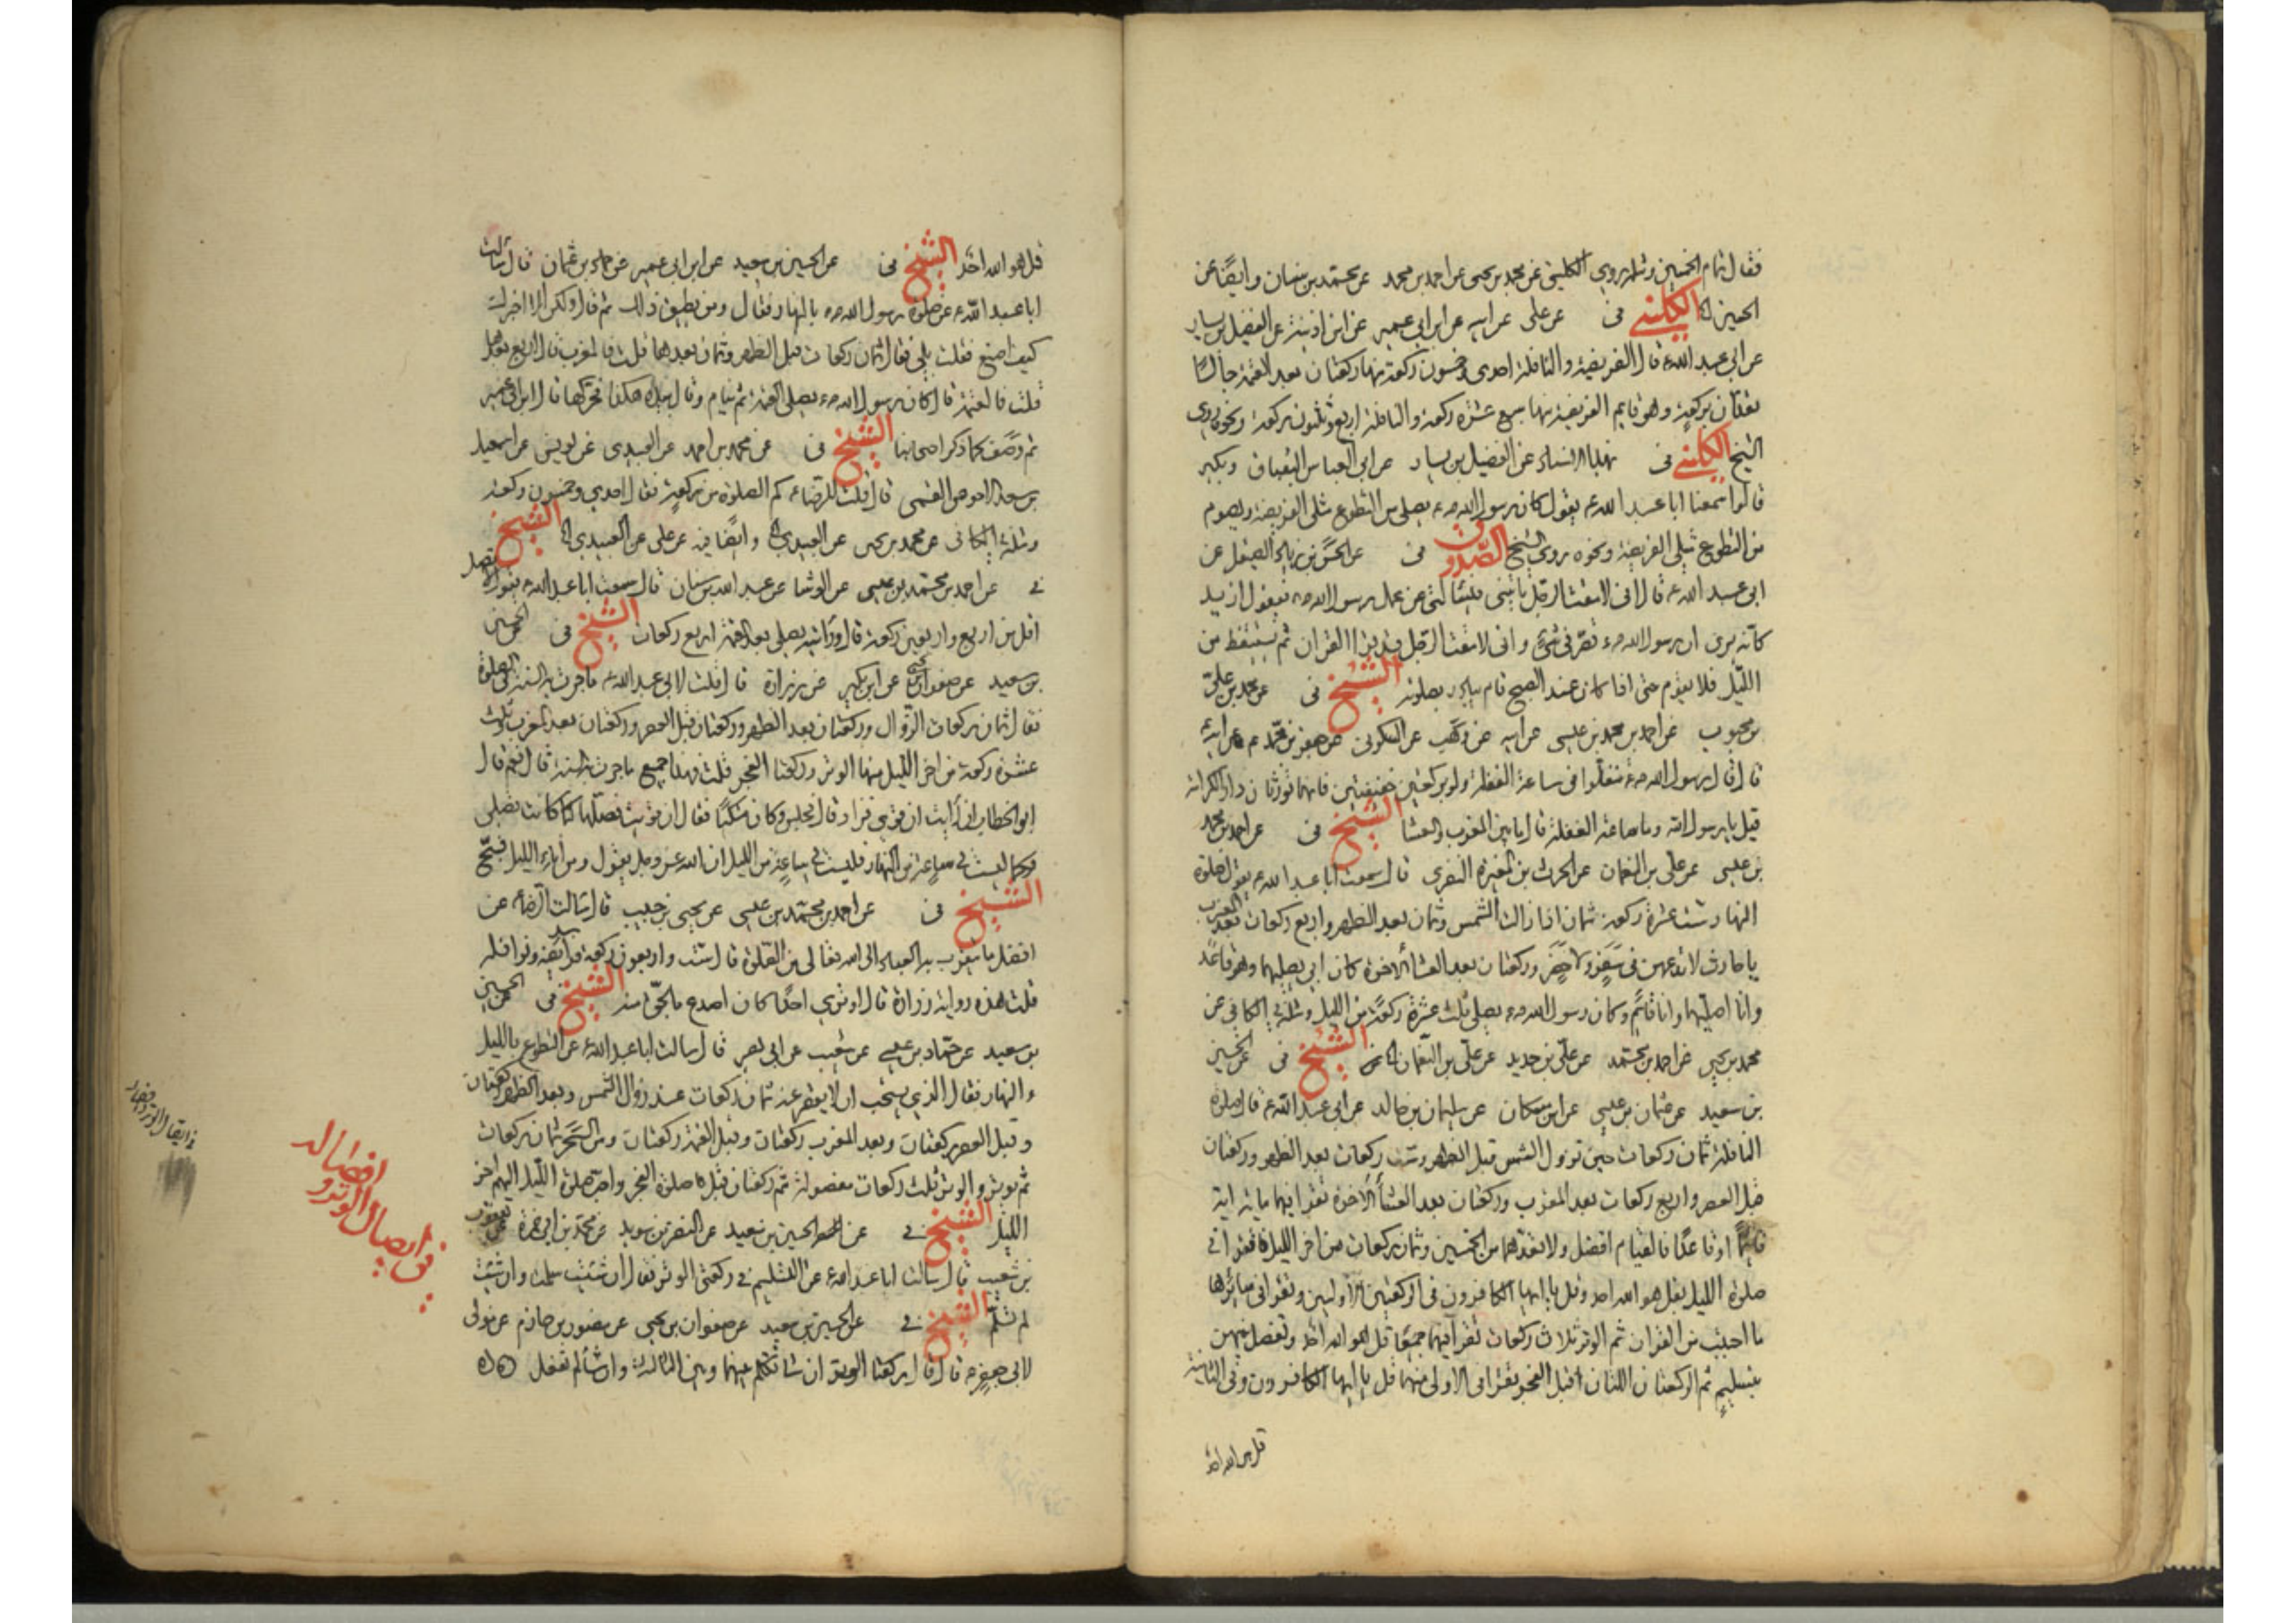 فقال تمام الخمسين ومثله روى الكليني عن محمد بن يحيى عن احمد بن محمد عن محمد بن سنان وايضًا عن
الحسين الكليني في عن على عن ابيه عن ابن ابي عمير عن ابن اذينة عن الفضيل بن يسار
عن ابي عبد الله ع قال الفريضة والنافلة احدى وخمسون ركعة منها ركعتان بعد العتمة جالسًا
تعدان بركعة وهو قايم الفريضة منها سبع عشرة ركعة والنافلة اربع وثلثون ركعة ونحوه روى
الشيخ الكليني في بهذا الاسناد عن الفضيل بن يسار عن ابي العباس البقباق وبكير
قالوا سمعنا ابا عبد الله ع يقول كان رسول الله ص يصلى من التطوع مثلى الفريضة ويصوم
من التطوع مثلى الفريضة ونحوه روى الشيخ الصدوق في عن الحسن بن زياد الصيقل عن
ابي عبد الله ع قال انى لامقت الرجل ياتينى فيسالنى عن عمل رسول الله ص فيقول ازيد
كانه يرى ان رسول الله ص قصر في شئ وانى لامقت الرجل قد قرا القران ثم يستيقظ من
الليل فلا يقوم حتى اذا كان عند الصبح قام يبادر بصلوته الشيخ في عن محمد بن على
بن محبوب عن احمد بن محمد بن عيسى عن ابيه عن وهب عن السكونى عن جعفر بن محمد ع عن ابيه
قال قال رسول الله ص تنفلوا في ساعة الغفلة ولو بركعتين خفيفتين فانهما تورثان دار الكرامة
قيل يا رسول الله وما ساعة الغفلة قال ما بين المغرب والعشا الشيخ في عن احمد بن محمد
بن عيسى عن على بن النعمان عن الحرث بن المغيرة النصرى قال سمعت ابا عبد الله ع يقول صلوة
النهار ست عشرة ركعة ثمان اذا زالت الشمس وثمان بعد الظهر واربع ركعات بعد المغرب
يا حارث لا تدعهن في سفر ولا حضر وركعتان بعد العشا الاخرة كان ابى يصليهما وهو قاعد
وانا اصليهما وانا قائم وكان رسول الله ص يصلى ثلث عشرة ركعة من الليل ومثله في الكافى عن
محمد بن يحيى عن احمد بن محمد عن على بن حديد عن على بن النعمان الشيخ في عن الحسين
بن سعيد عن عثمان بن عيسى عن ابن مسكان عن سليمان بن خالد عن ابي عبد الله ع قال صلوة
النافلة ثمان ركعات حين تزول الشمس قبل الظهر وست ركعات بعد الظهر وركعتان
قبل العصر واربع ركعات بعد المغرب وركعتان بعد العشا الاخرة تقرا فيهما مائة اية
قائمًا او قاعدًا فالقيام افضل ولا تعدهما من الخمسين وثمان ركعات من اخر الليل فاقرا في
صلوة الليل بقل هو الله احد وقل يا ايها الكافرون في الركعتين الاوليين وتقرا في سائرها
ما احببت من القران ثم الوتر ثلاث ركعات تقرا فيها جميعًا قل هو الله احد وتفصل بينهن
بتسليم ثم الركعتان اللتان قبل الفجر تقرا فى الاولى منهما قل يا ايها الكافرون وفى الثانية
قل هو الله احد
قل هو الله احد الشيخ في عن الحسين بن سعيد عن ابن ابي عمير عن حماد بن عثمان قال سالت
ابا عبد الله ع عن صلوة رسول الله ص بالنهار فقال ومن يطيق ذلك ثم قال ولكن الا اخبرك
كيف اصنع فقلت بلى فقال ثمان ركعات قبل الظهر وثمان بعدها قلت فالمغرب قال اربع بعدها
قلت فالعتمة قال كان رسول الله ص يصلى العتمة ثم ينام وقال بيده هكذا فحركها قال ابن ابي عمير
ثم وصف كما ذكر اصحابنا الشيخ في عن محمد بن احمد عن العبيدى عن يونس عن اسمعيل
بن سعد الاحوص القمى قال قلت للرضا ع كم الصلوة من ركعة فقال احدى وخمسون ركعة
ومثله الكافى عن محمد بن يحيى عن العبيدى وايضًا فيه عن على عن العبيدى الشيخ
في عن احمد بن محمد بن عيسى عن الوشا عن عبد الله بن سنان قال سمعت ابا عبد الله ع يقول لا تصل
اقل من اربع واربعين ركعة قال ورايته يصلى بعد العتمة اربع ركعات الشيخ في عن الحسين
بن سعيد عن صفوان عن ابن بكير عن زرارة قال قلت لابي عبد الله ع ما جرت به السنة في الصلوة
فقال ثمان ركعات الزوال وركعتان بعد الظهر وركعتان قبل العصر وركعتان بعد المغرب وثلث
عشرة ركعة من اخر الليل منها الوتر وركعتا الفجر قلت فهذا جميع ما جرت به السنة قال نعم فقال
ابو الخطاب افرايت ان قوى فزاد قال فجلس وكان متكئًا فقال ان قويت فصلها كما كانت تصلى
وكما ليست في ساعة من النهار فليست في ساعة من الليل ان الله عز وجل يقول ومن اناء الليل فسبح
الشيخ في عن احمد بن محمد بن عيسى عن يحيى بن حبيب قال سالت الرضا ع عن
افضل ما يتقرب به العباد الى الله تعالى من الصلوة قال ست واربعون ركعة فرائضه ونوافله
قلت هذه رواية زرارة قال اوترى احدًا كان اصدع بالحق منه الشيخ في عن الحسين
بن سعيد عن حماد بن عيسى عن شعيب عن ابي بصير قال سالت ابا عبد الله ع عن التطوع بالليل
والنهار فقال الذي يستحب ان لا يقصر عنه ثمان ركعات عند زوال الشمس وبعد الظهر ركعتان
وقبل العصر ركعتان وبعد المغرب ركعتان وقبل العتمة ركعتان ومن السحر ثمان ركعات
ثم يوتر والوتر ثلث ركعات مفصولة ثم ركعتان قبل صلوة الفجر واحب صلوة الليل اليهم اخر
الليل الشيخ في عن الحسين بن سعيد عن النضر بن سويد عن محمد بن ابي حمزة عن يعقوب
بن شعيب قال سالت ابا عبد الله ع عن التسليم في ركعتى الوتر فقال ان شئت سلمت وان شئت
لم تسلم الشيخ في عن الحسين بن سعيد عن صفوان بن يحيى عن منصور بن حازم عن مولى
لابي جعفر ع قال قال ركعتا الوتر ان شا تكلم بينهما وبين الثالثة وان شا لم يفعل
في ايصال الوتر و
افصاله